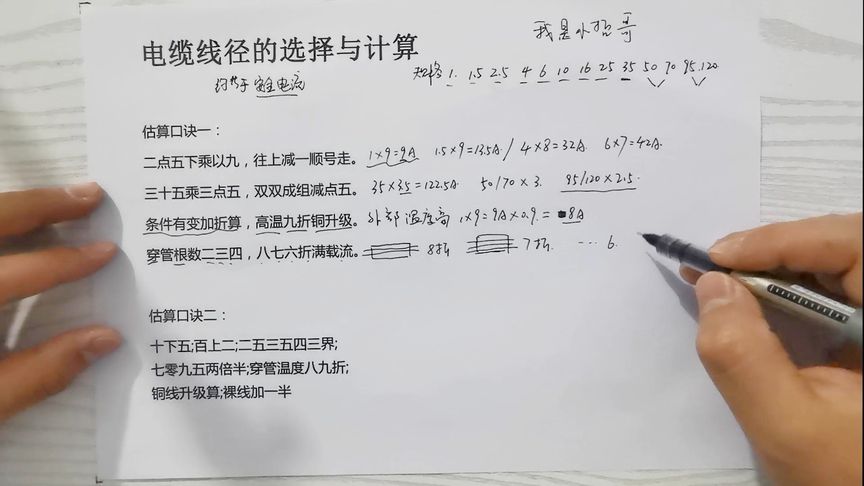 我是小哲哥
电缆线径的选择与计算
约等于安全电流
规格 1. 1.5 2.5 4 6 10 16 25 35 50 70 95.120
估算口诀一：
二点五下乘以九，往上减一顺号走。 1×9=9A 1.5×9=13.5A / 4×8=32A 6×7=42A
三十五乘三点五，双双成组减点五。 35×3.5=122.5A 50/70×3. 95/120×2.5.
条件有变加折算，高温九折铜升级。 外部温度高 1×9=9A×0.9.=8A
穿管根数二三四，八七六折满载流。 8折 7折. ... 6.
估算口诀二：
十下五;百上二;二五三五四三界;
七零九五两倍半;穿管温度八九折;
铜线升级算;裸线加一半